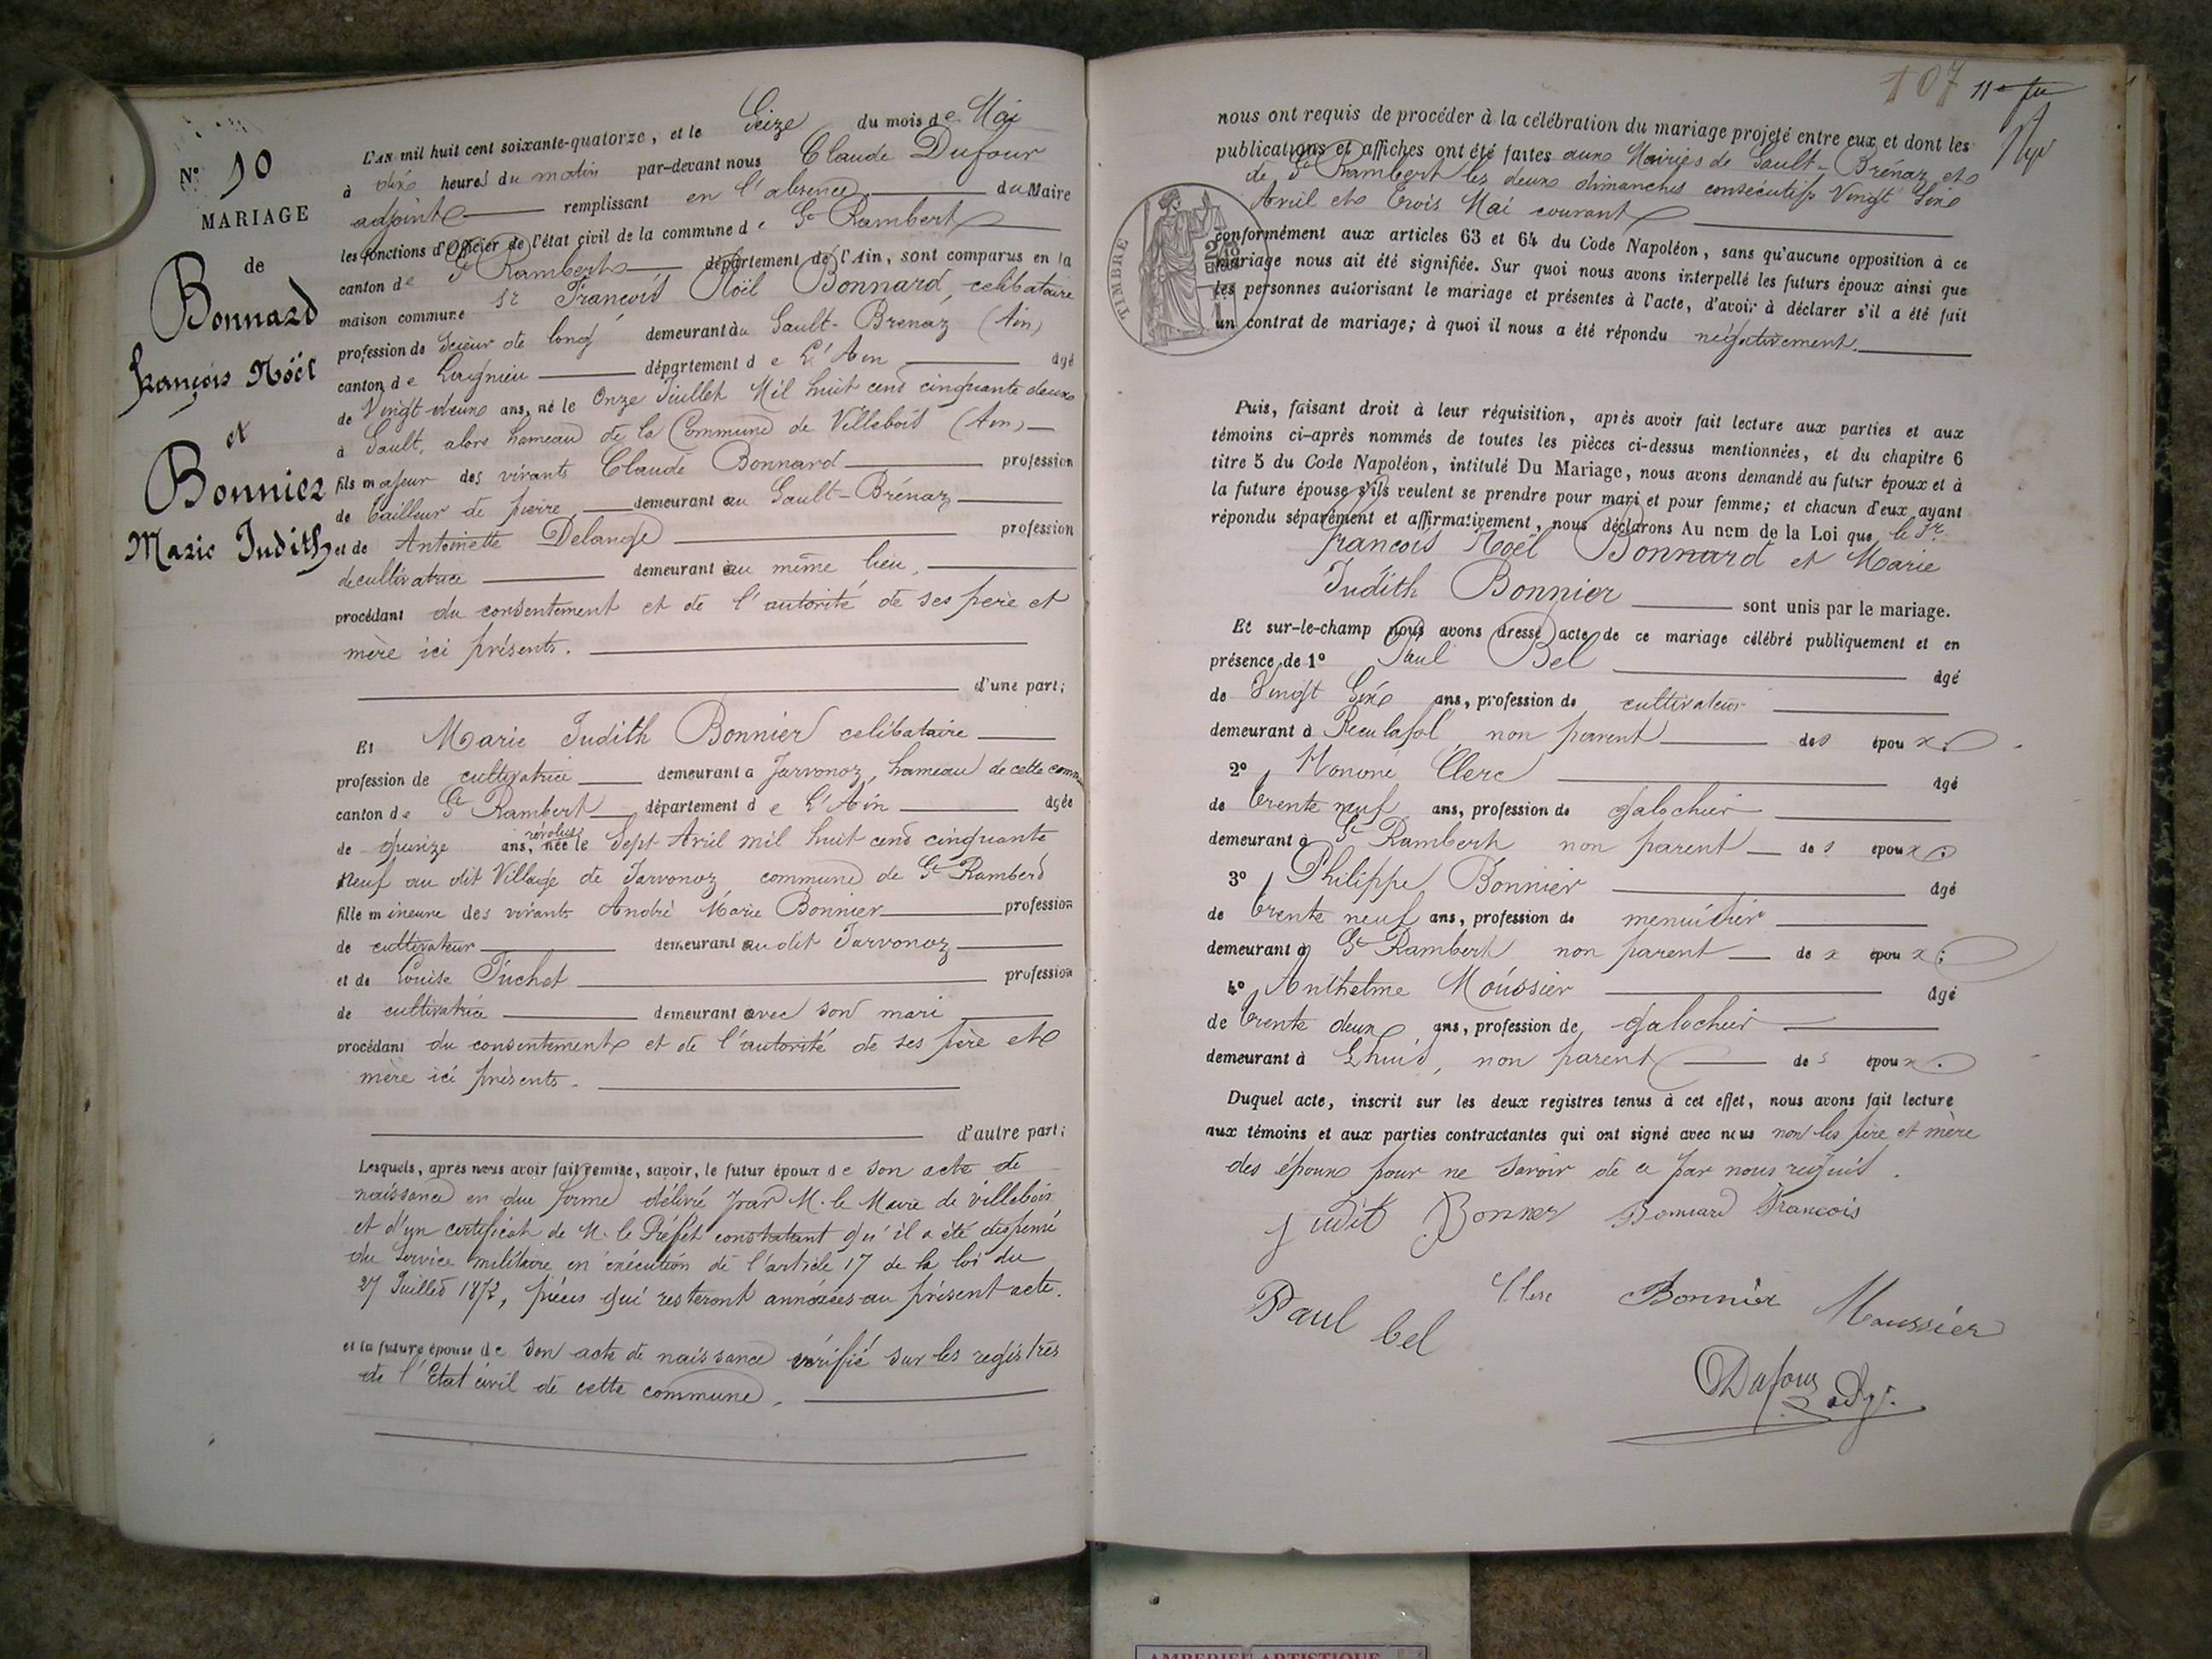 N° 10
MARIAGE
de
Bonnard
françois Noël
et
Bonnier
Marie Judith
L'AN mil huit cent soixante-quatorze, et le Seize du mois de Mai
à dix heures du matin par-devant nous Claude Dufour
adjoint remplissant en l'absence du Maire
les fonctions d'Officier de l'état civil de la commune de St Rambert
canton de St Rambert département de l'Ain, sont comparus en la
maison commune Sr François Noël Bonnard, celibataire
profession de Scieur de long demeurant au Sault-Brenaz (Ain)
canton de Lagnieu département de L'Ain âgé
de Vingt deux ans, né le Onze Juillet Mil huit cent cinquante deux
à Sault, alors hameau de la Commune de Villebois (Ain)
fils majeur des vivants Claude Bonnard profession
de tailleur de pierre demeurant au Sault-Brénaz
et de Antoinette Delange profession
de cultivatrice demeurant au même lieu,
procédant du consentement et de l'autorité de ses père et
mère ici présents.
d'une part;
Et Marie Judith Bonnier celibataire
profession de cultivatrice demeurant a Javornoz, hameau de cette comm
canton de St Rambert département de L'Ain âgée
de quinze ans, révolus née le Sept Avril mil huit cent cinquante
Neuf au dit Village de Javornoz, commune de St Rambert
fille mineure des vivants André Marie Bonnier profession
de cultivateur demeurant au dit Javornoz
et de Louise Juchet profession
de cultivatrice demeurant avec son mari
procédant du consentement et de l'autorité de ses père et
mère ici présents.
d'autre part;
Lesquels, après nous avoir fait remise, savoir, le futur époux de son acte de
naissance en due forme délivré par M. le Maire de villebois
et d'un certificat de M. le Préfet constatant qu'il a été dispensé
du Service militaire en exécution de l'article 17 de la loi du
27 Juillet 1872, pièces qui resteront annéxées au présent acte.
et la future épouse de son acte de naissance vérifié sur les registres
de l'Etat civil de cette commune.
107
nous ont requis de procéder à la célébration du mariage projeté entre eux et dont les
publications et affiches ont été faites aux Mairies de Sault-Brénaz et
de St Rambert les deux dimanches consecutifs Vingt Six
Avril et Trois Mai courant
conformément aux articles 63 et 64 du Code Napoléon, sans qu'aucune opposition à ce
mariage nous ait été signifiée. Sur quoi nous avons interpellé les futurs époux ainsi que
les personnes autorisant le mariage et présentes à l'acte, d'avoir à déclarer s'il a été fait
un contrat de mariage; à quoi il nous a été répondu négativement.
TIMBRE
Puis, faisant droit à leur réquisition, après avoir fait lecture aux parties et aux
témoins ci-après nommés de toutes les pièces ci-dessus mentionnées, et du chapitre 6
titre 5 du Code Napoléon, intitulé Du Mariage, nous avons demandé au futur époux et à
la future épouse s'ils veulent se prendre pour mari et pour femme; et chacun d'eux ayant
répondu séparément et affirmativement, nous déclarons Au nom de la Loi que le Sr
françois Noël Bonnard et Marie
Judith Bonnier sont unis par le mariage.
Et sur-le-champ nous avons dressé acte de ce mariage célébré publiquement et en
présence de 1° Paul Bel âgé
de Vingt Six ans, profession de cultivateur
demeurant à Reculafol non parent des époux.
2° Honoré Clerc âgé
de trente neuf ans, profession de galochier
demeurant à St Rambert non parent des époux.
3° Philippe Bonnier âgé
de trente neuf ans, profession de menuisier
demeurant à St Rambert non parent des époux;
4° Anthelme Moussier âgé
de trente deux ans, profession de galochier
demeurant à Lhuis, non parent des époux.
Duquel acte, inscrit sur les deux registres tenus à cet effet, nous avons fait lecture
aux témoins et aux parties contractantes qui ont signé avec nous non les père et mère
des époux pour ne savoir de ce par nous requis.
judit Bonner Bonnard François
Paul bel Clerc Bonnier Moussier
Dufour adj.
AMBERIEU ARTISTIQUE